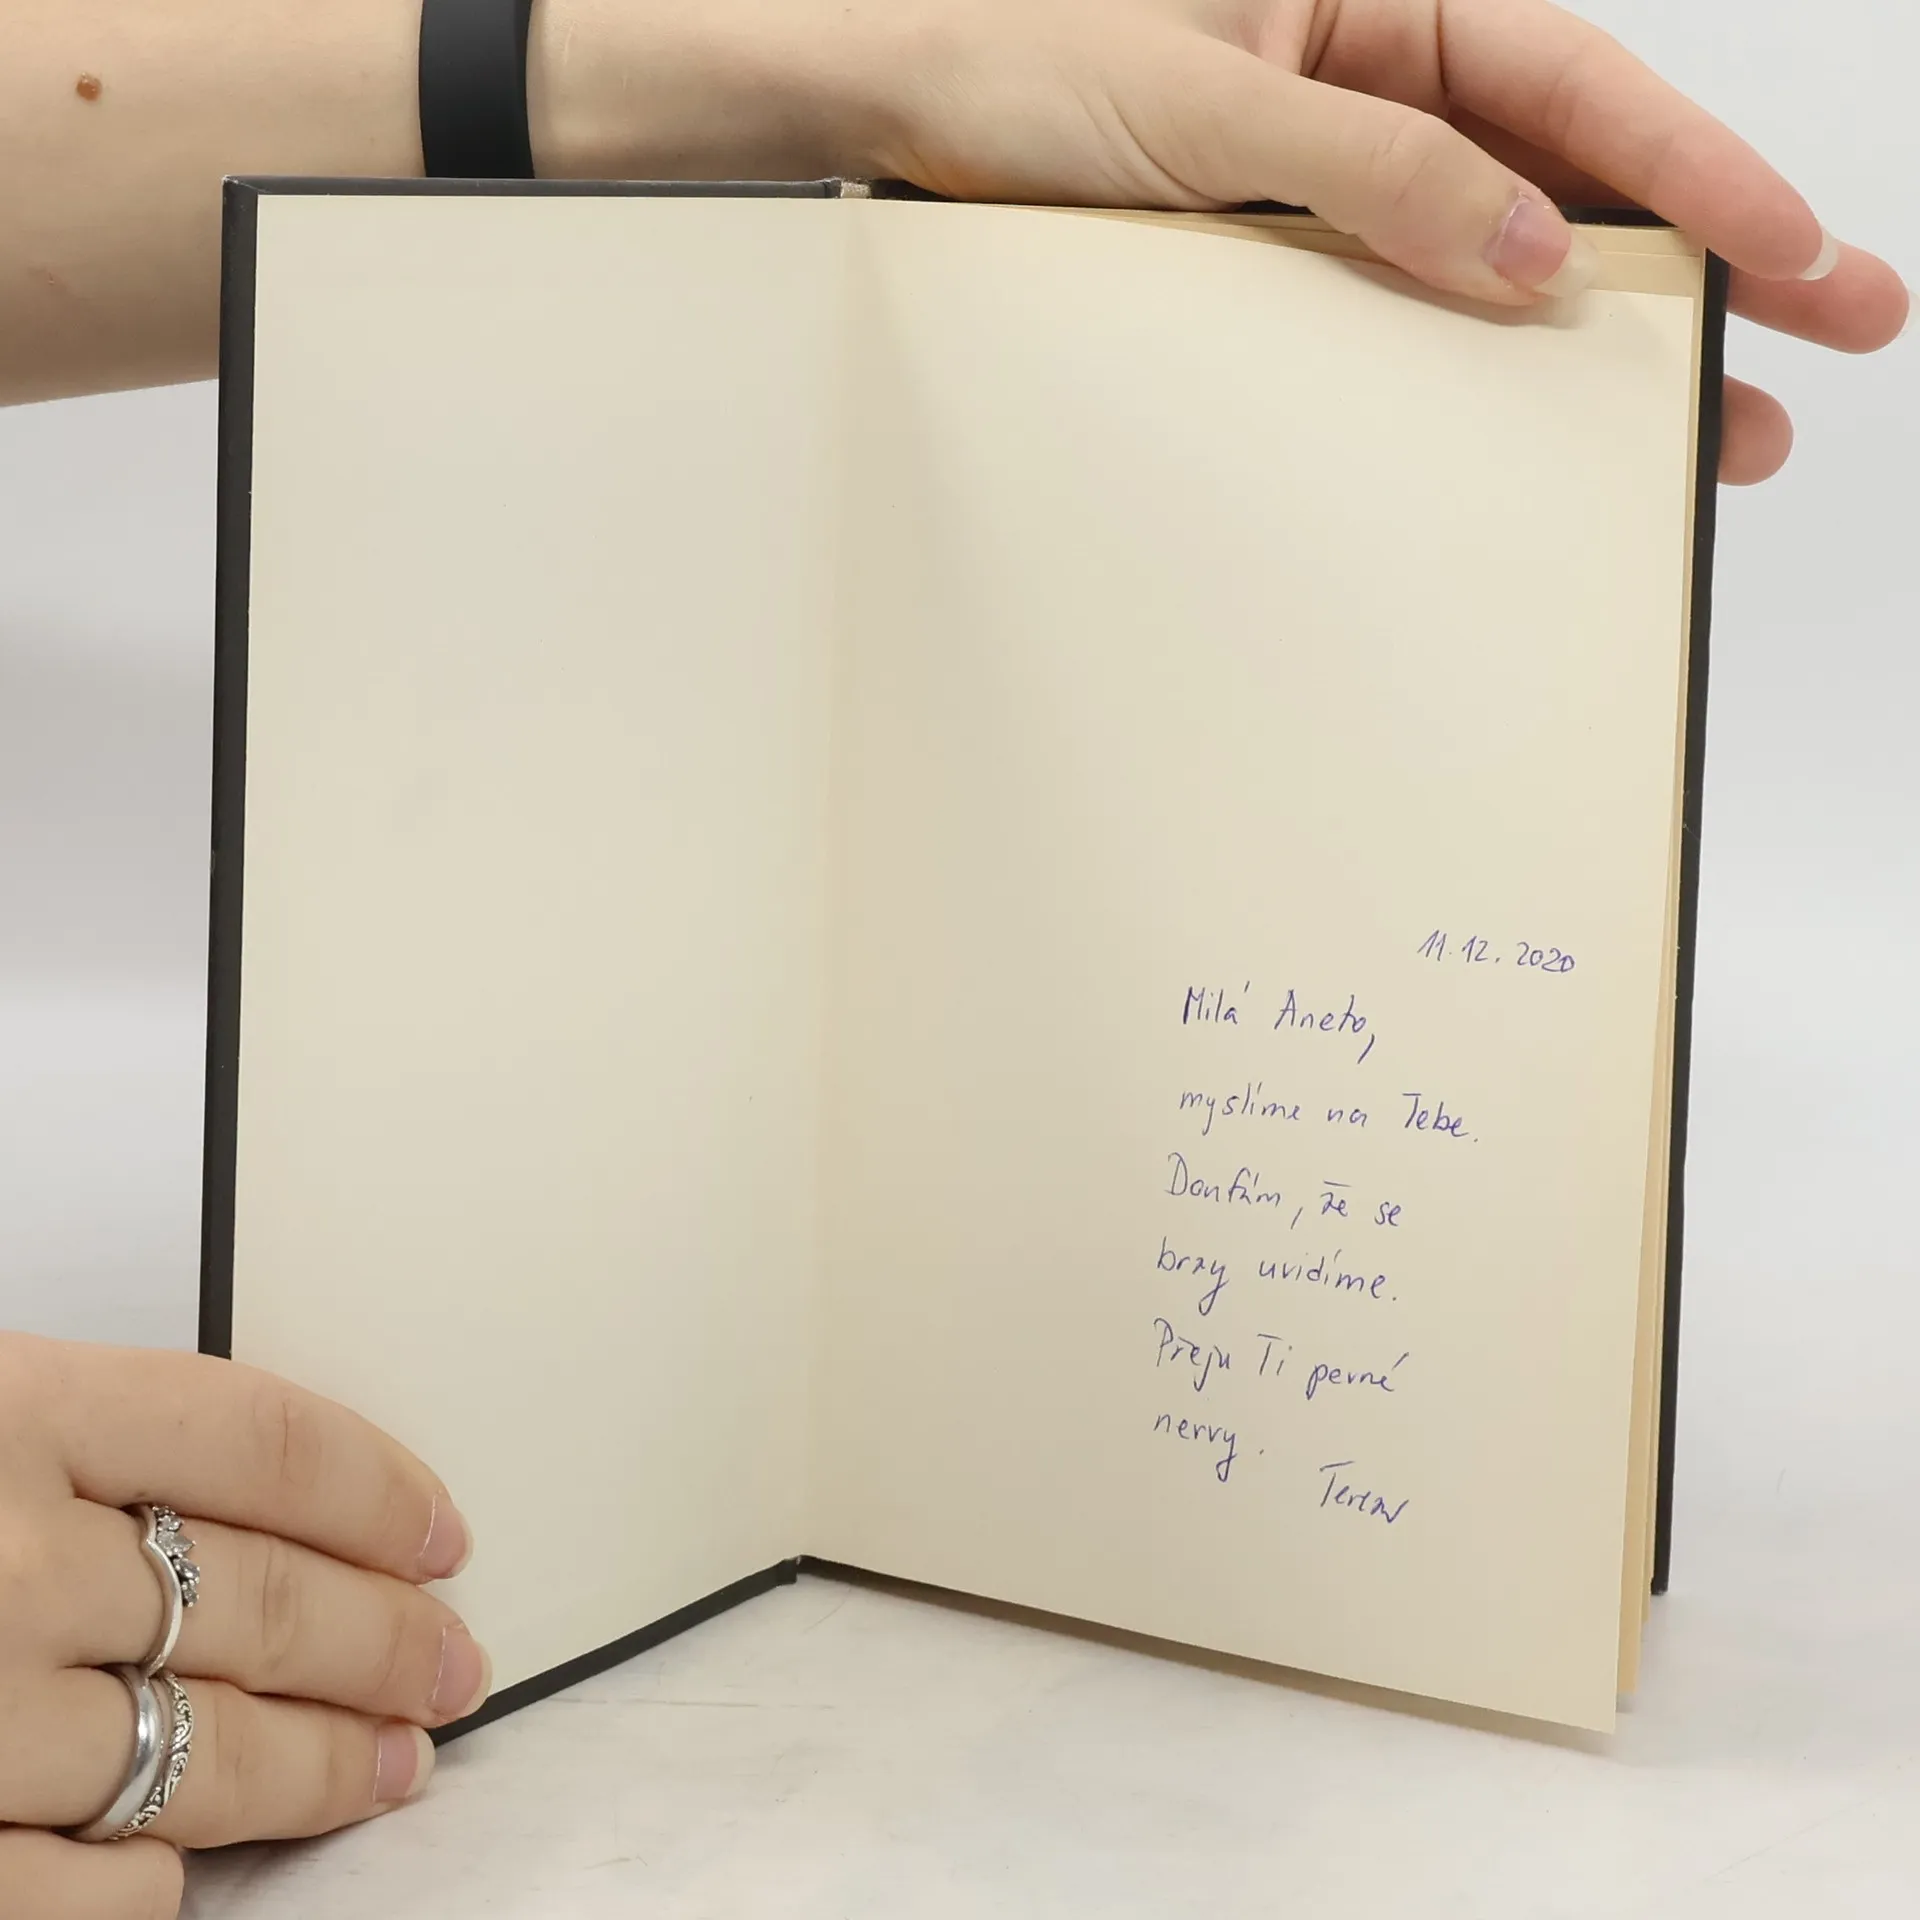 11.12.2020
Milá Aneto,
myslíme na Tebe.
Doufám, že se
brzy uvidíme.
Přeju Ti pevné
nervy.